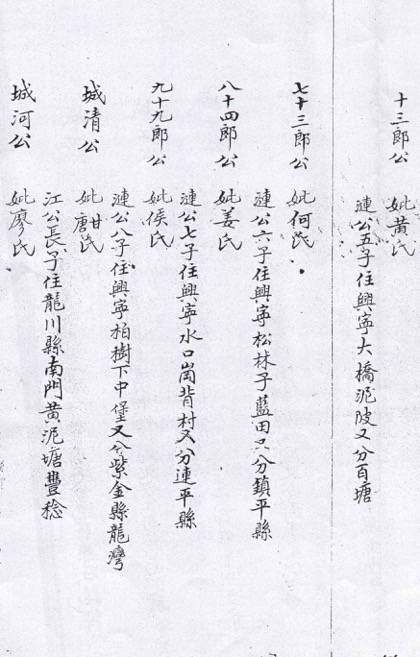 十三郎公
妣黃氏
漣公五子住興寧大橋泥陂又分百塘
七十三郎公
妣何氏
漣公六子住興寧松林子藍田又分鎮平縣
八十四郎公
妣姜氏
漣公七子住興寧水口崗背村又分連平縣
九十九郎公
妣侯氏
漣公八子住興寧柏樹下中堡又分紫金縣龍灣
城清公
妣甘唐氏
江公長子住龍川縣南門黄泥塘豐稔
城河公
妣廖氏